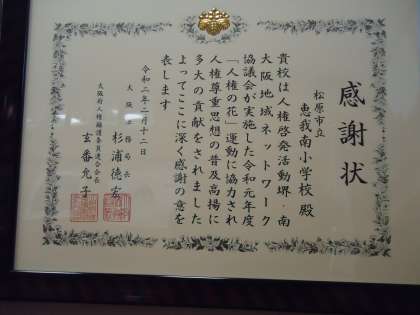 感謝状
松原市立
恵我南小学校 殿
貴校は人権啓発活動堺・南
大阪地域ネットワーク
協議会が実施した令和元年度
「人権の花」運動に協力され
人権尊重思想の普及高揚に
多大の貢献をされました
よってここに深く感謝の意を
表します
令和二年二月十二日
大阪法務局長
杉浦徳宏
大阪府人権擁護委員連合会会長
玄番允子